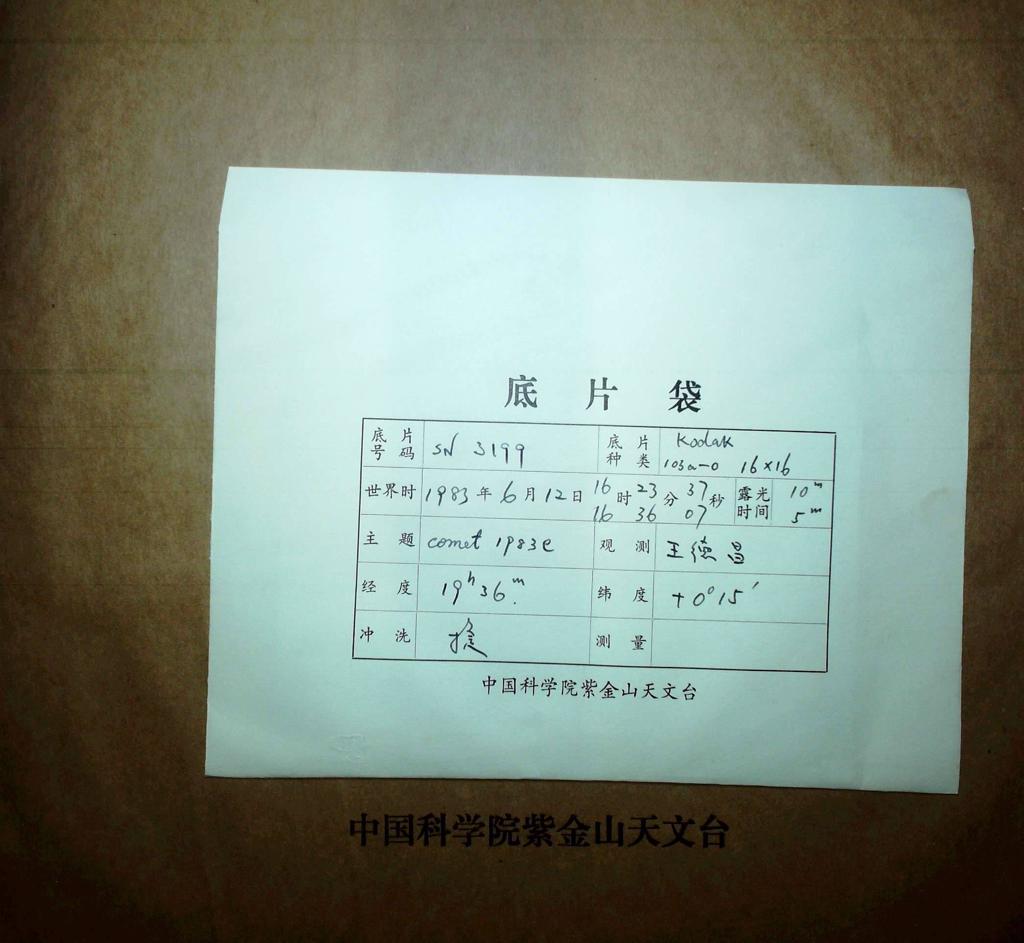 底 片 袋
底片号码 SN 3199 底片种类 Kodak 103a-0 16×16
世界时 1983年6月12日 16时23分37秒 露光时间 10ᵐ
16 36 07 5ᵐ
主题 comet 1983e 观测 王德昌
经度 19ʰ36ᵐ. 纬度 +0°15′
冲洗 测量
中国科学院紫金山天文台
中国科学院紫金山天文台